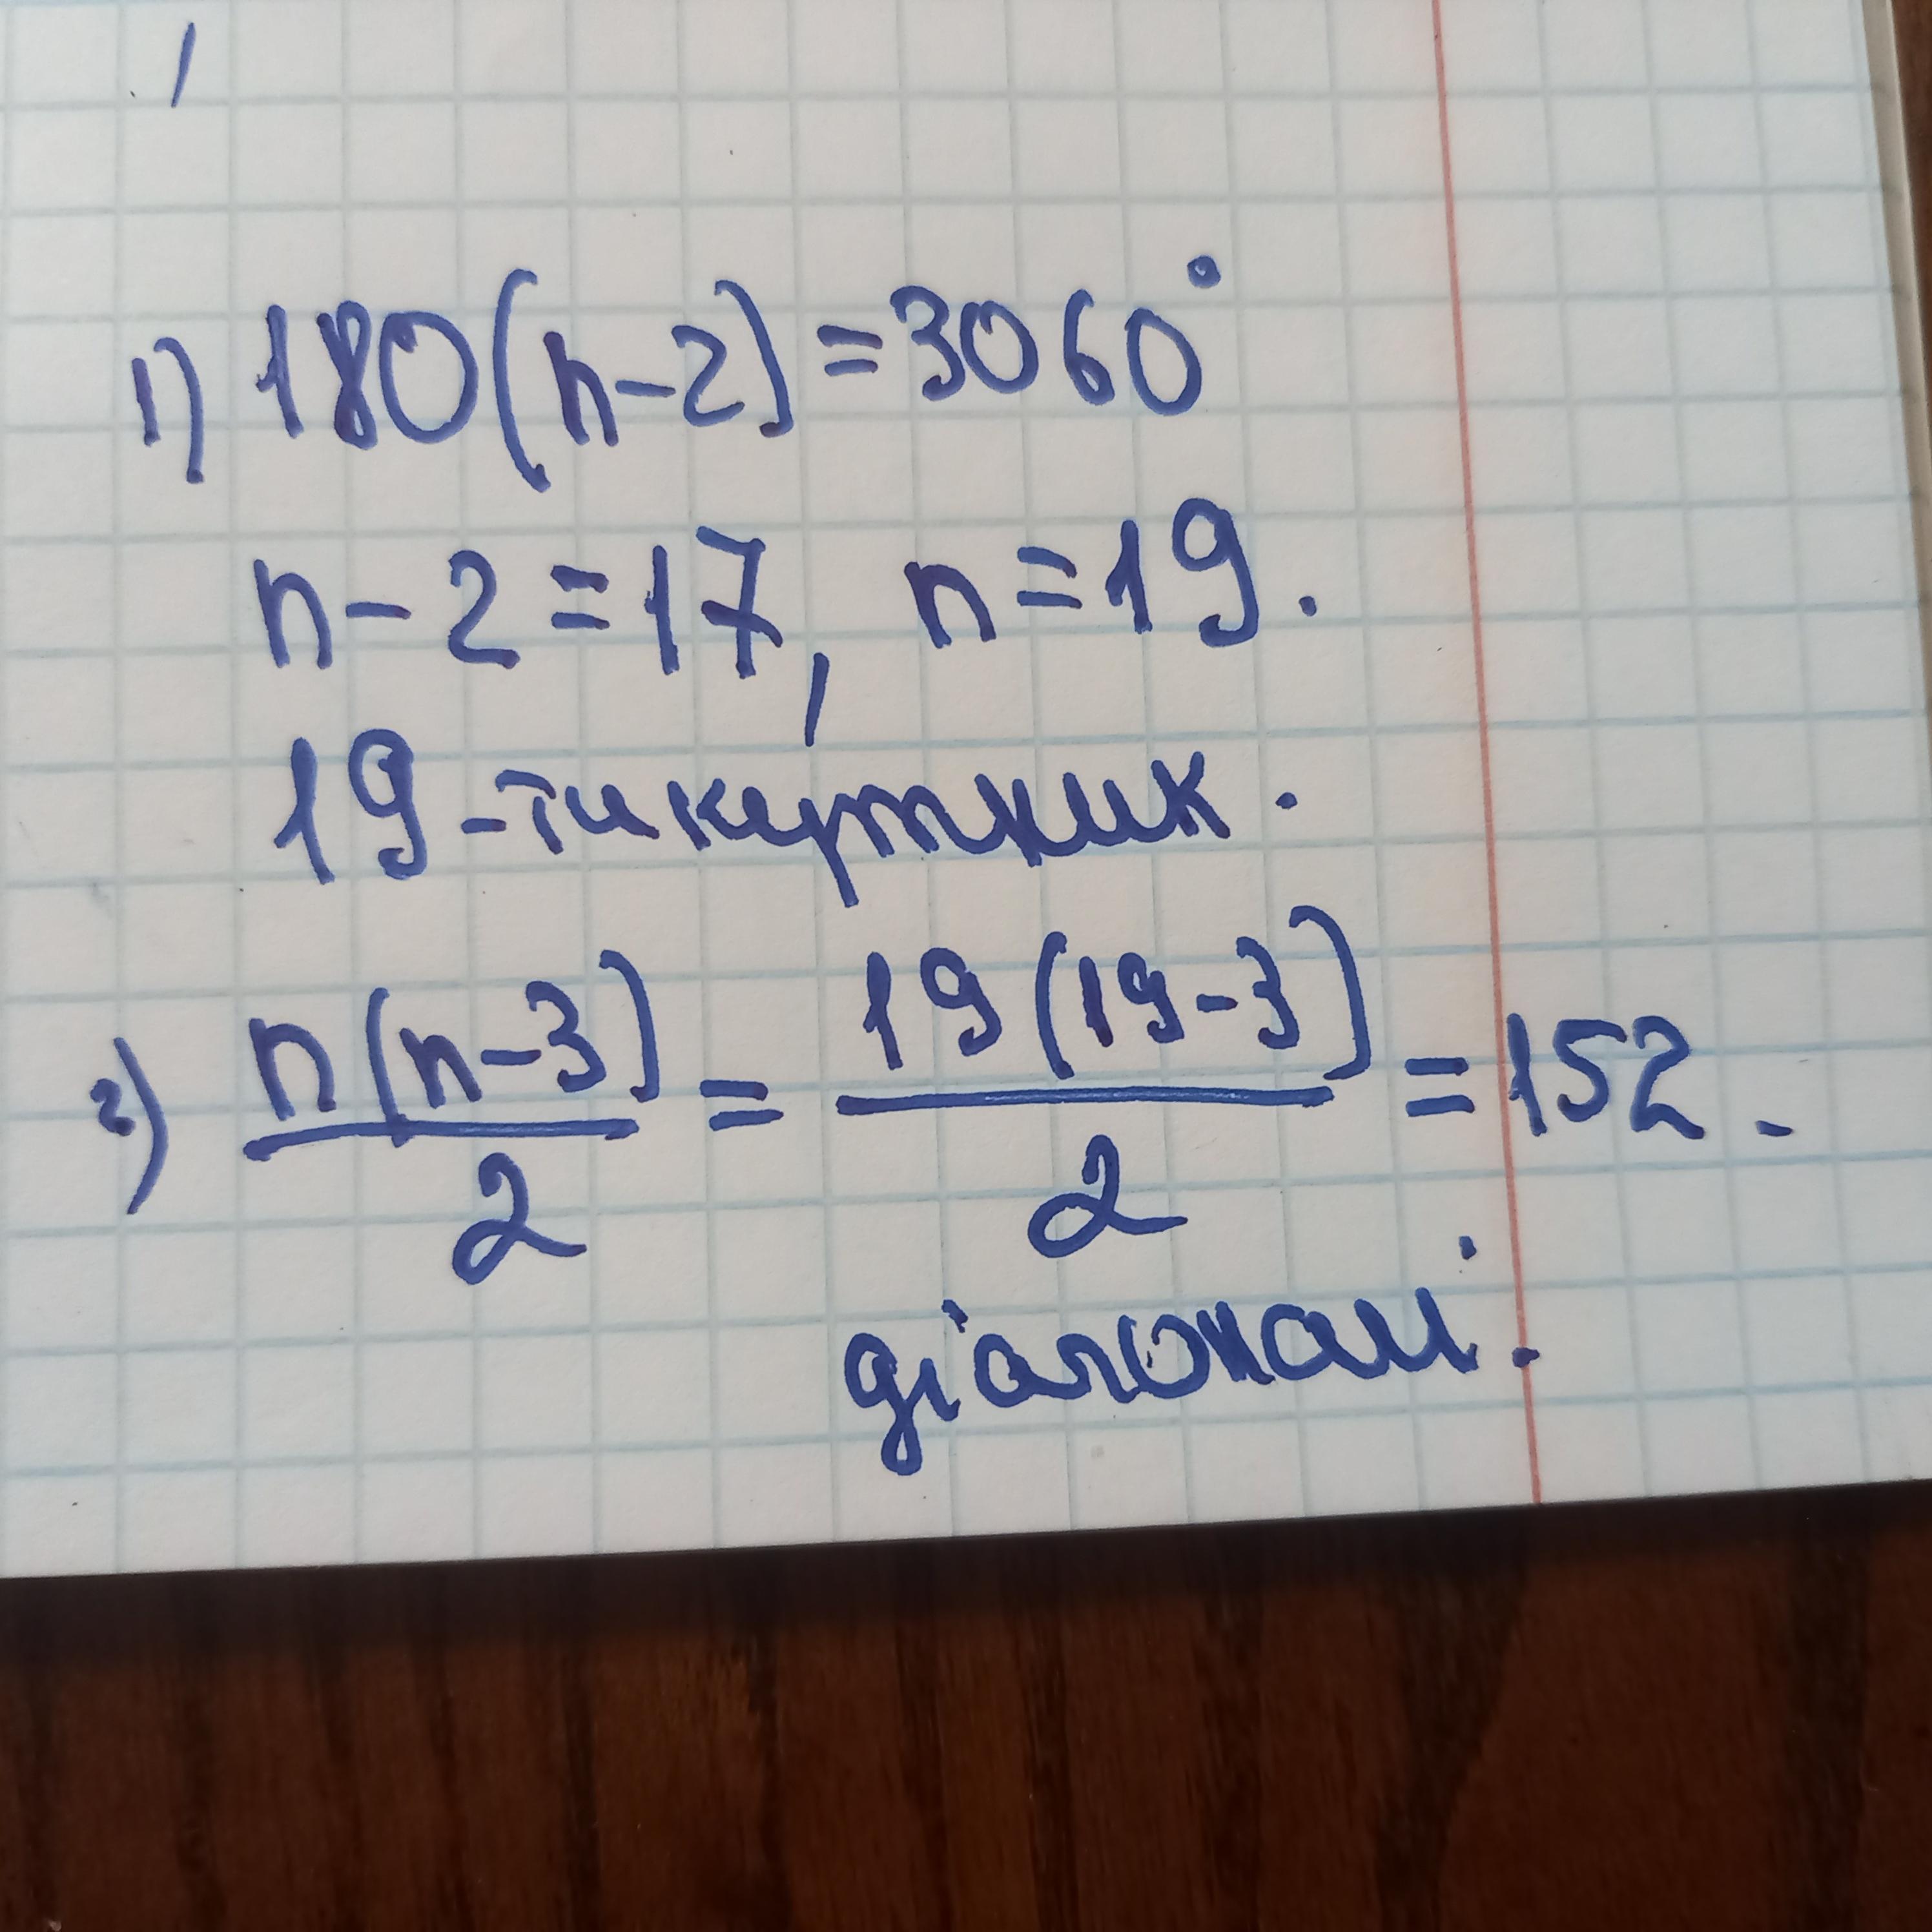 1) 180(n-2)=3060°
n-2=17, n=19.
19-тикутник.
2) n(n-3)/2 = 19(19-3)/2 = 152.
діагоналі.